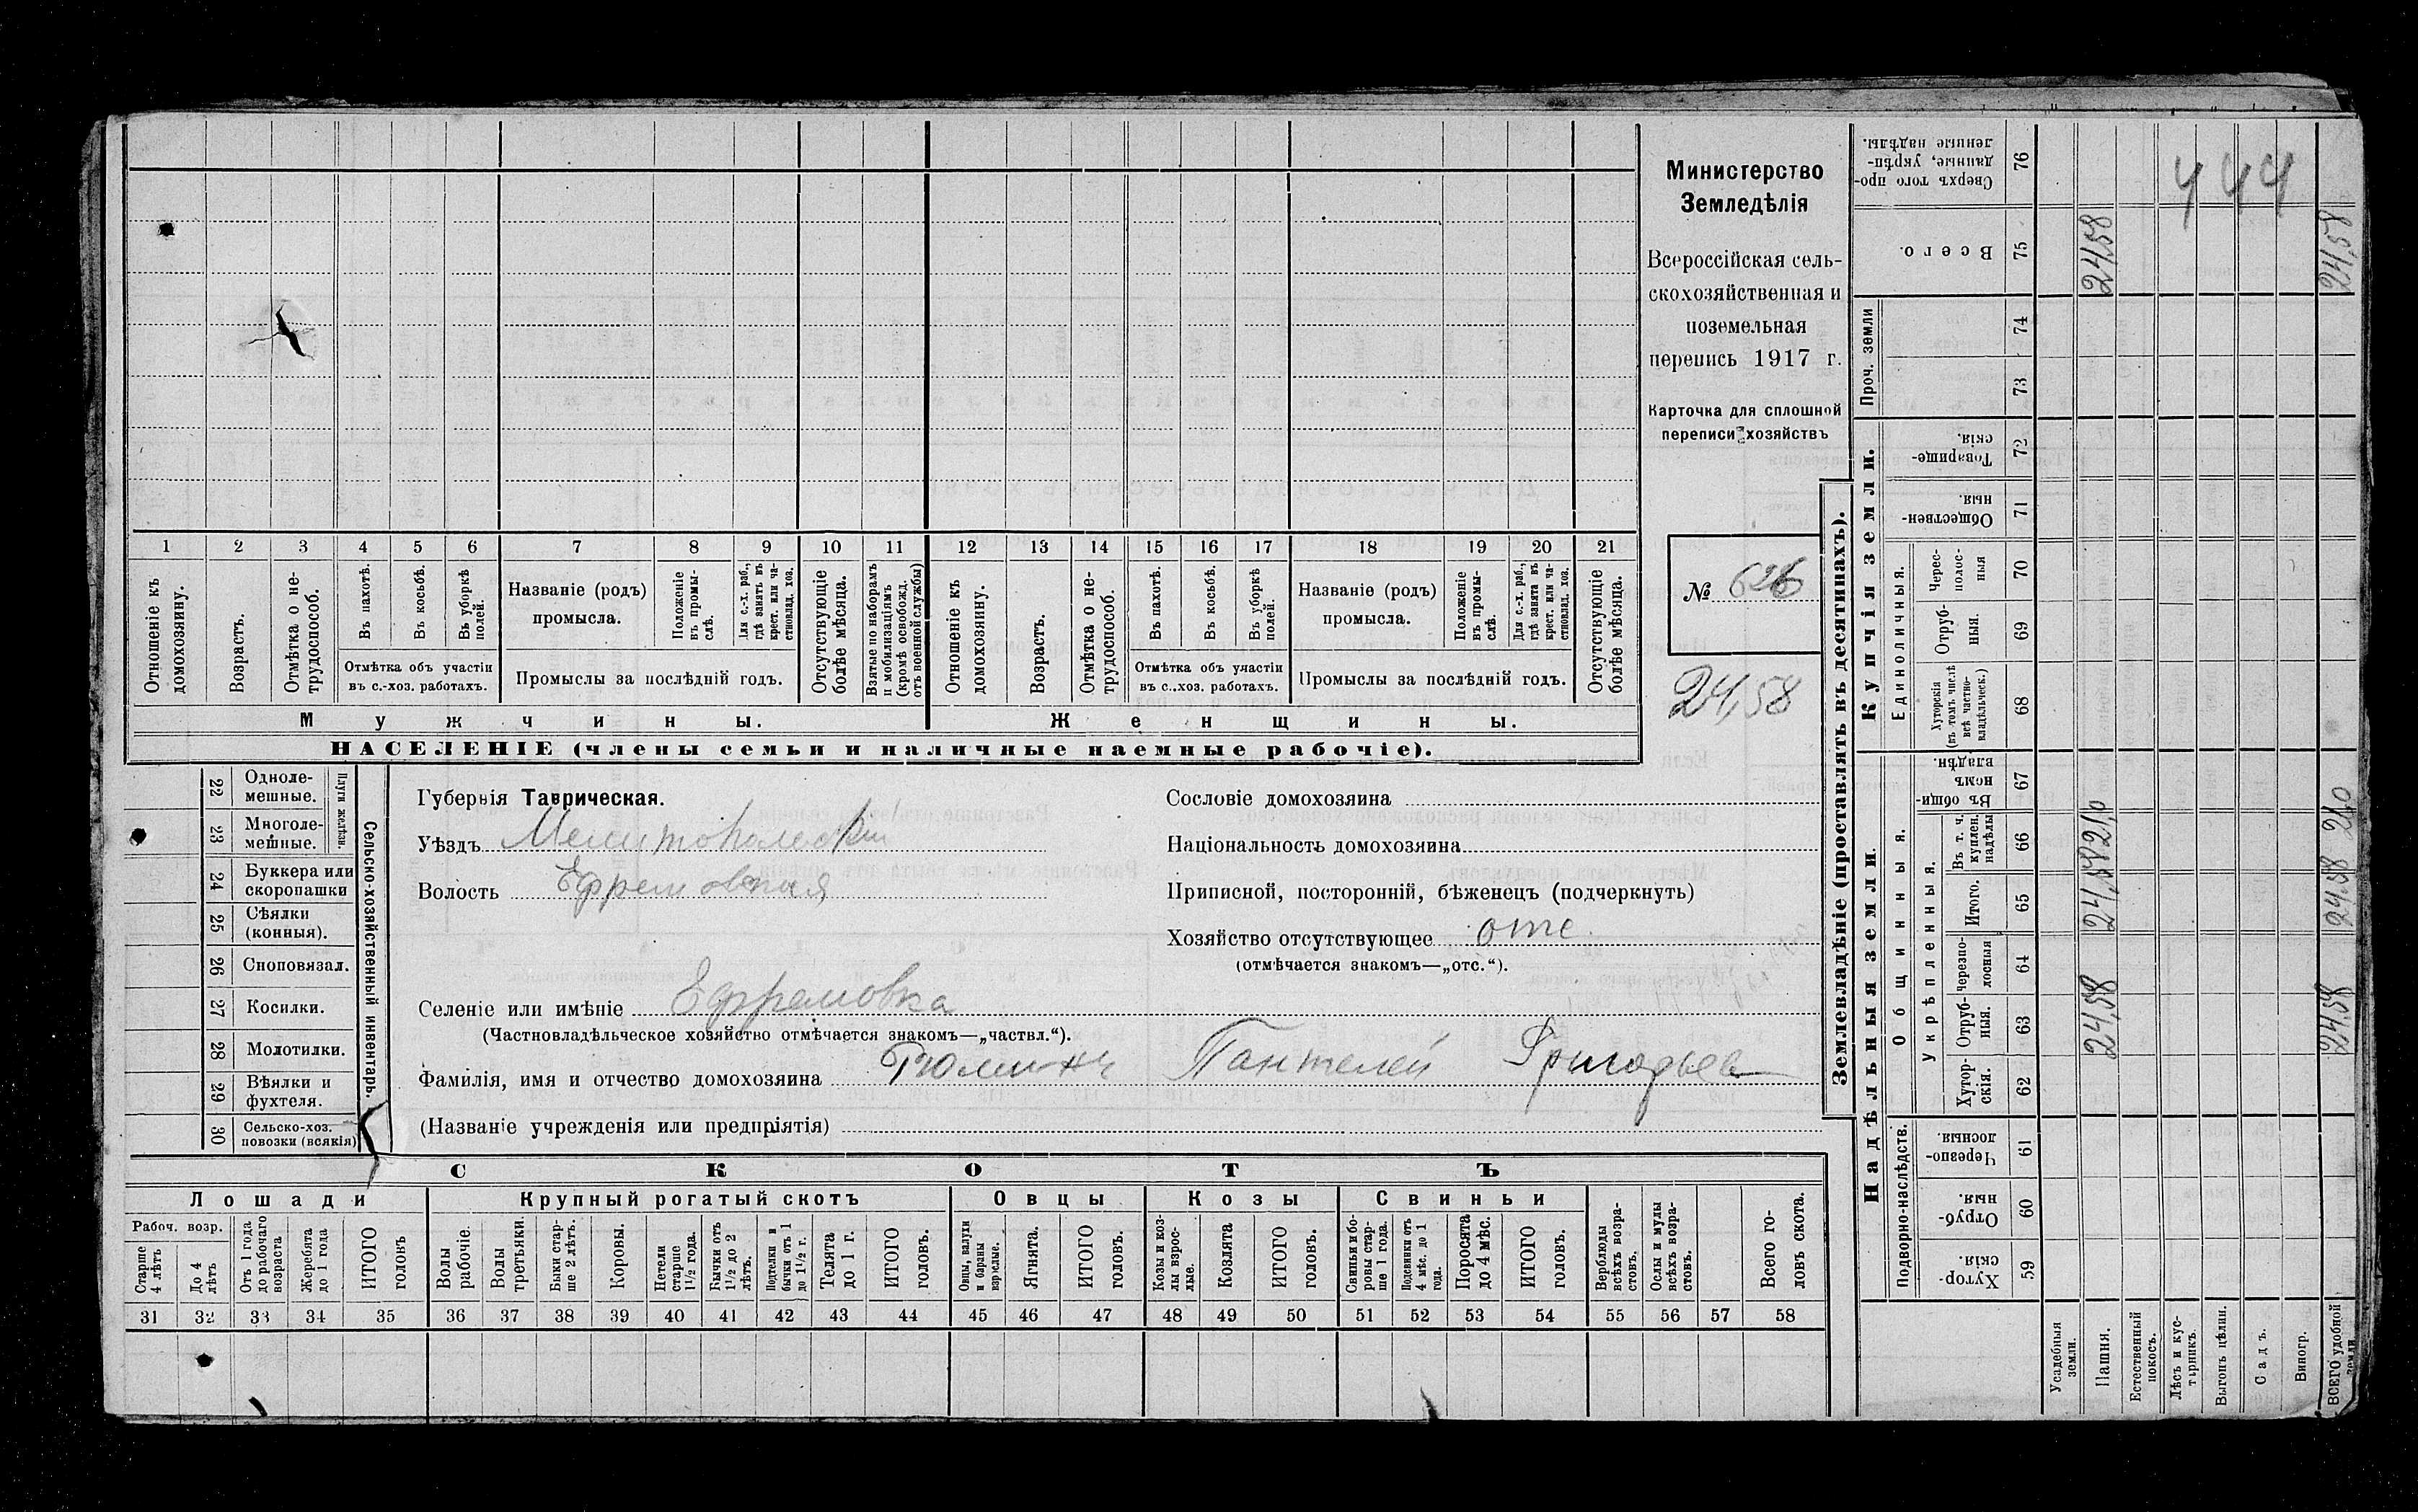 Министерство
Земледѣлія
Всероссійская сель-
скохозяйственная и
поземельная
перепись 1917 г.
Карточка для сплошной
переписи хозяйствъ
№ 626
24,58
1 2 3 4 5 6 7 8 9 10 11 12 13 14 15 16 17 18 19 20 21
Отношеніе къ домохозяину.
Возрастъ.
Отмѣтка о не-трудоспособ.
Въ пахотѣ.
Въ косьбѣ.
Въ уборкѣ полей.
Отмѣтка объ участіи
въ с.-хоз. работахъ.
Названіе (родъ)
промысла.
Положеніе въ промы-слѣ.
Для с.-х. раб., гдѣ занятъ въ крест. или ча-стновлад. хоз.
Промыслы за послѣдній годъ.
Отсутствующіе болѣе мѣсяца.
Взятые по наборамъ и мобилизаціямъ (кромѣ освобожд. отъ военной службы)
Отношеніе къ домохозяину.
Возрастъ.
Отмѣтка о не-трудоспособ.
Въ пахотѣ.
Въ косьбѣ.
Въ уборкѣ полей.
Отмѣтка объ участіи
въ с.-хоз. работахъ.
Названіе (родъ)
промысла.
Положеніе въ промы-слѣ.
Для с.-х. раб., гдѣ занята въ крест. или ча-стновлад. хоз.
Промыслы за послѣдній годъ.
Отсутствующіе болѣе мѣсяца.
Мужчины.
Женщины.
НАСЕЛЕНІЕ (члены семьи и наличные наемные рабочіе).
Сельско-хозяйственный инвентарь.
Плуги желѣзн.
22 Одноле-мешные.
23 Многоле-мешные.
24 Буккера или скоропашки
25 Сѣялки (конныя).
26 Сноповязал.
27 Косилки.
28 Молотилки.
29 Вѣялки и фухтеля.
30 Сельско-хоз. повозки (всякія)
Губернія Таврическая.
Уѣздъ Мелитопольскій
Волость Ефремовская
Селеніе или имѣніе Ефремовка
(Частновладѣльческое хозяйство отмѣчается знакомъ—„частвл.“).
Сословіе домохозяина
Національность домохозяина
Приписной, посторонній, бѣженецъ (подчеркнуть)
Хозяйство отсутствующее отс.
(отмѣчается знакомъ—„отс.“).
Фамилія, имя и отчество домохозяина Пантелей Григорьев
(Названіе учрежденія или предпріятія)
СКОТЪ
Лошади
Рабоч. возр.
Старше 4 лѣтъ
До 4 лѣтъ
Отъ 1 года до рабочаго возраста
Жеребята до 1 года
ИТОГО головъ
Крупный рогатый скотъ
Волы рабочіе.
Волы третьяки.
Быки стар-ше 2 лѣтъ.
Коровы.
Нетели старше 1 1/2 года.
Бычки отъ 1 1/2 до 2 лѣтъ.
Подтелки и бычки отъ 1 до 1 1/2 г.
Телята до 1 г.
ИТОГО головъ.
Овцы
Овцы, валухи и бараны взрослые.
Ягнята.
ИТОГО головъ.
Козы
Козы и коз-лы взрос-лые.
Козлята
ИТОГО головъ.
Свиньи
Свиньи и бо-ровы стар-ше 1 года.
Подсвинки отъ 4 мѣс. до 1 года.
Поросята до 4 мѣс.
ИТОГО головъ.
Верблюды всѣхъ возра-стовъ.
Ослы и мулы всѣхъ возра-стовъ.
Всего го-ловъ скота.
31 32 33 34 35 36 37 38 39 40 41 42 43 44 45 46 47 48 49 50 51 52 53 54 55 56 57 58
Землевладѣніе (проставлять въ десятинахъ).
Купчія земли.
Надѣльныя земли.
76 Сверхъ того про-данные, укрѣп-ленные надѣлы.
75 Всего.
Проч. земли
74
73
72 Товарище-скія.
71 Обществен-ныя.
Единоличныя.
70 Черес-полос-ныя
69 Отруб-ныя.
68 Хуторскія (въ томъ числѣ всѣ частно-владѣльческ.)
67 Въ общин-номъ владѣн.
Общинныя.
Укрѣпленныя.
66 Въ т. ч. куплен. надѣлы
65 Итого.
64 Черезпо-лосныя
63 Отруб-ныя.
62 Хутор-скія.
Подворно-наслѣдств.
61 Черезпо-лосныя.
60 Отруб-ныя.
59 Хутор-скія.
Усадебныя земли.
Пашня. 24,58 24,58 21,0 24,58
Естественный покосъ.
Лѣсъ и кус-тарникъ.
Выгонъ цѣлин.
Садъ.
Виногр.
ВСЕГО удобной земли 24,58 24,58 21,0 24,58
444